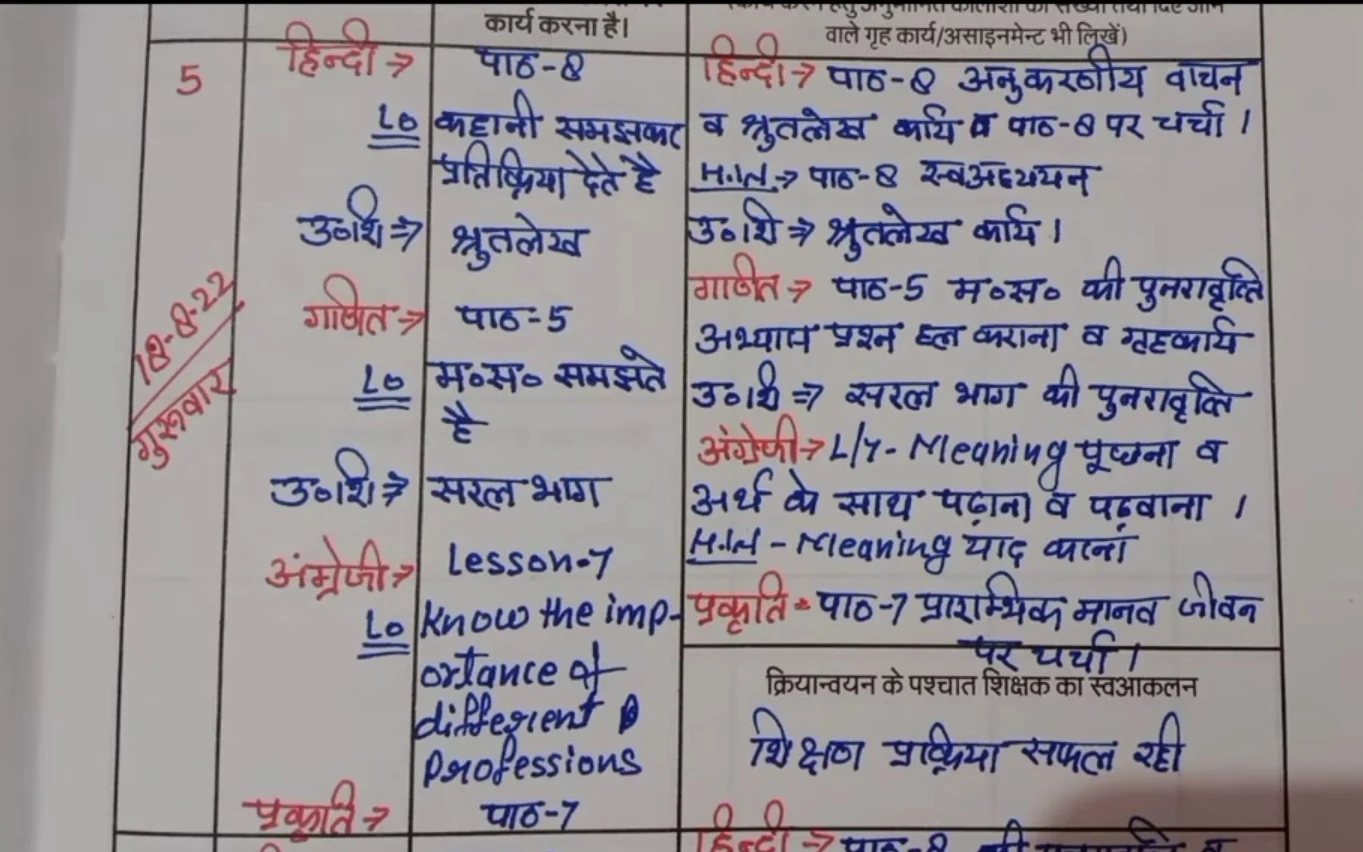 कार्य करना है।
वाले गृह कार्य/असाइनमेंट भी लिखें)
5
18-8-22
गुरूवार
हिन्दी → पाठ-8
LO कहानी समझकर
प्रतिक्रिया देते है
उ०शि ⇒ श्रुतलेख
गणित → पाठ-5
LO म०स० समझते
है
उ०शि ⇒ सरल भाग
अंग्रेजी → Lesson-7
LO Know the imp-
ortance of
different
Professions
प्रकृति → पाठ-7
हिन्दी → पाठ-8 अनुकरणीय वाचन
व श्रुतलेख कार्य व पाठ-8 पर चर्चा।
H.W. → पाठ-8 स्वअध्ययन
उ०शि ⇒ श्रुतलेख कार्य।
गणित → पाठ-5 म०स० की पुनरावृत्ति
अभ्यास प्रश्न हल कराना व गृहकार्य
उ०शि ⇒ सरल भाग की पुनरावृत्ति
अंग्रेजी → L/7- Meaning पूछना व
अर्थ के साथ पढ़ाना व पढ़वाना।
H.W - Meaning याद करना
प्रकृति - पाठ-7 प्रारम्भिक मानव जीवन
पर चर्चा।
क्रियान्वयन के पश्चात शिक्षक का स्वआकलन
शिक्षण प्रक्रिया सफल रही
हिन्दी → पाठ-8 की